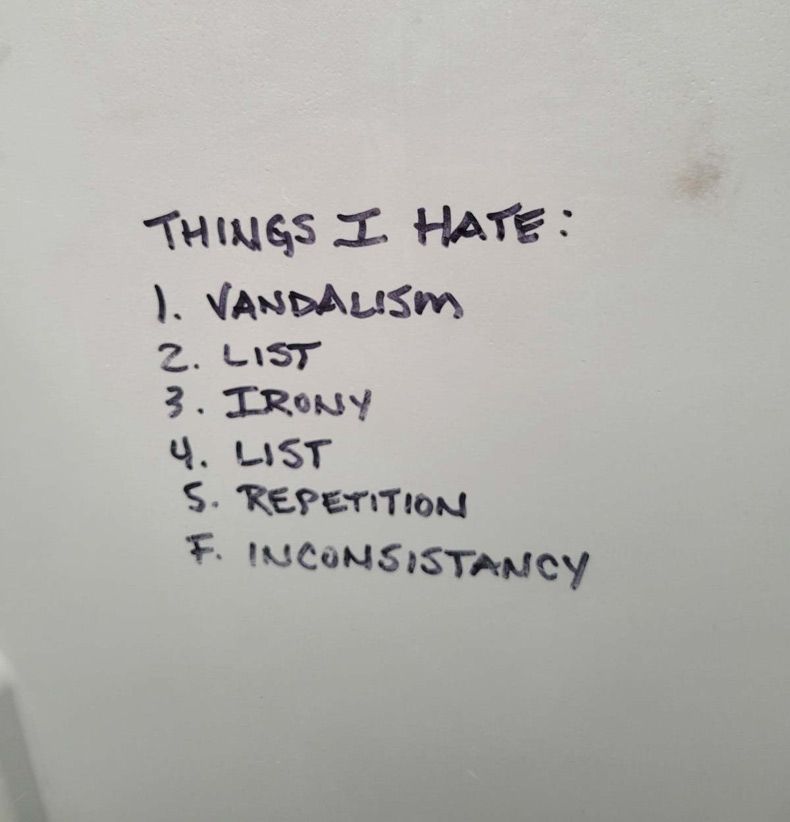 THINGS I HATE:
1. VANDALISM
2. LIST
3. IRONY
4. LIST
5. REPETITION
F. INCONSISTANCY